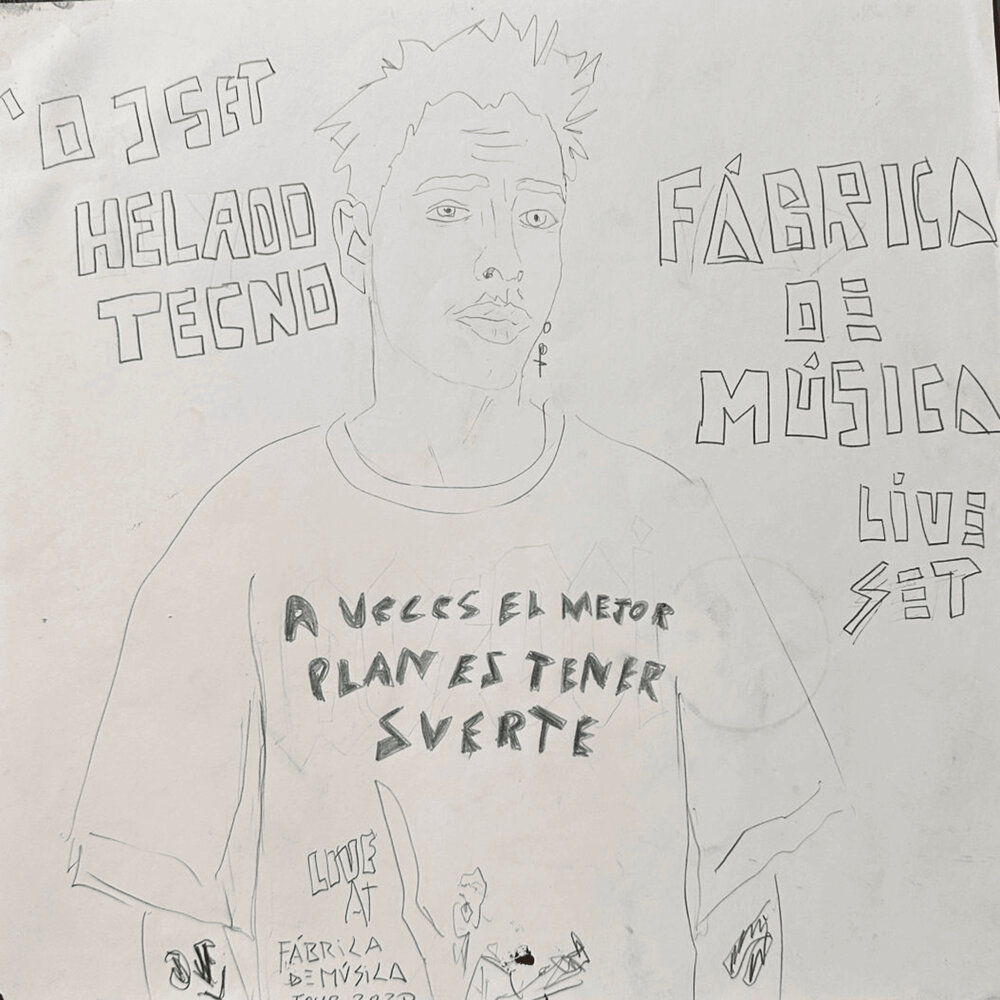 DJ SET
HELADO
TECNO
FÁBRICA
DE
MÚSICA
LIVE
SET
A VECES EL MEJOR
PLAN ES TENER
SUERTE
LIVE
AT
FÁBRICA
DE MÚSICA
TOUR 2020